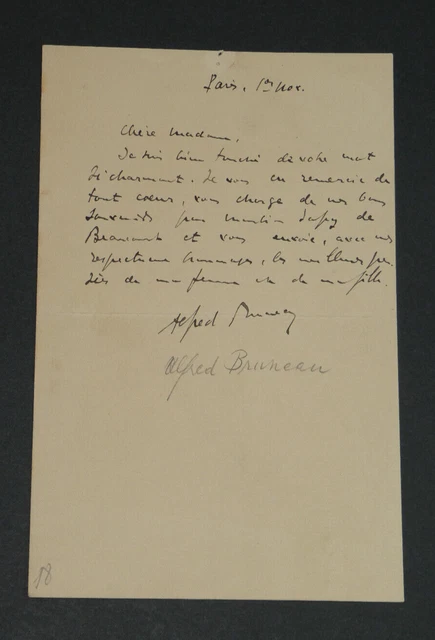 Paris, 1er Nov.
Chère Madame,
Je suis bien touché de votre mot
si charmant. Je vous en remercie de
tout coeur, vous charge de mes bons
souvenirs pour de
et vous envoie, avec mes
respectueux hommages, les meilleures pen
sées de ma femme et de ma fille.
Alfred Bruneau
Alfred Bruneau
18